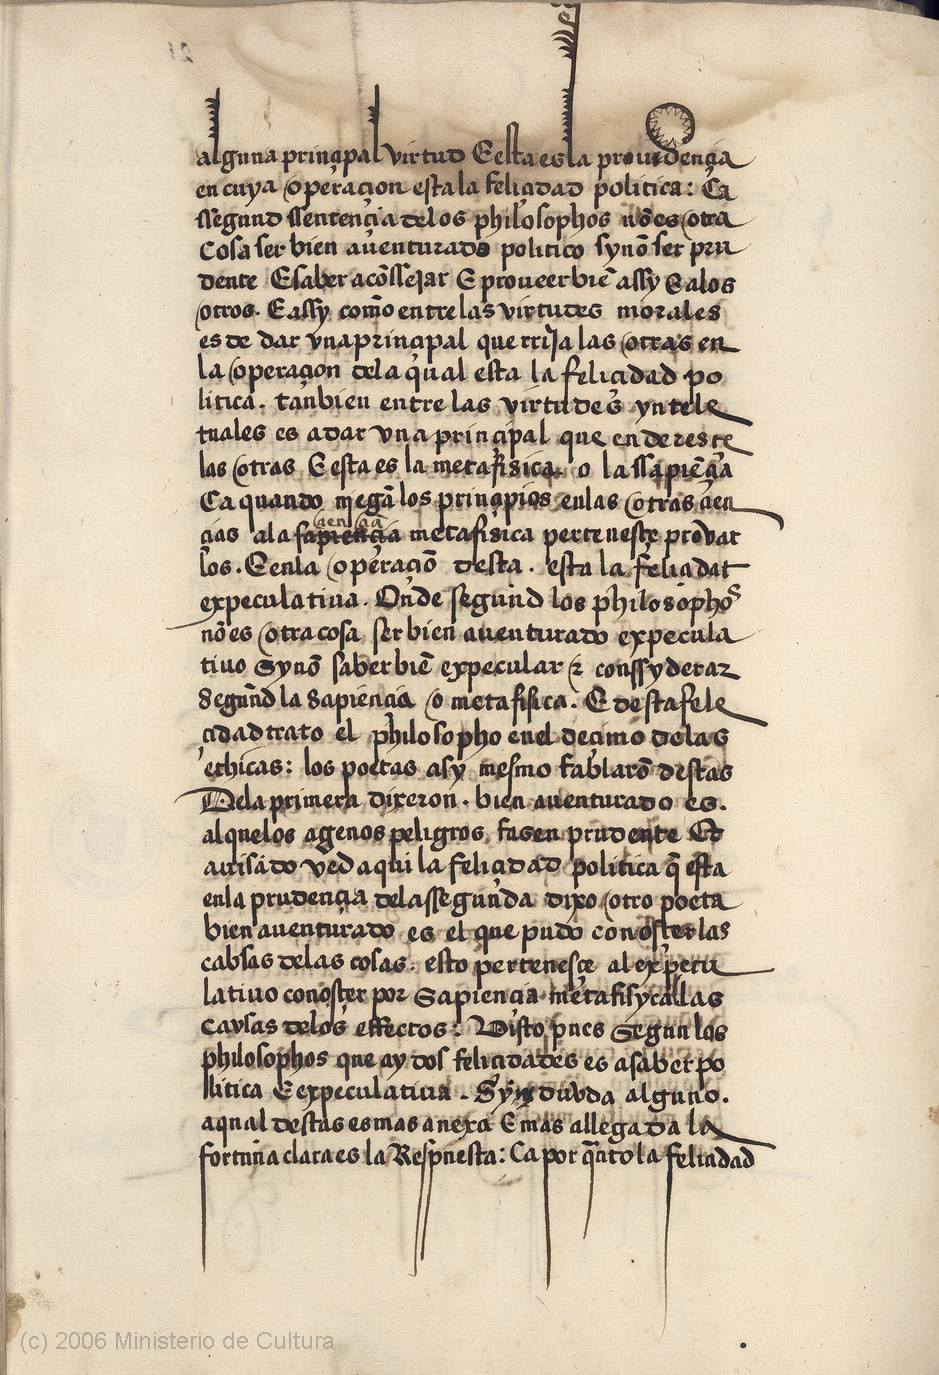 21
alguna prinçipal virtud E esta es la prouidençia
en cuya operaçion esta la feliçidad politica: Ca
ssegund ssentençia delos philosophos nõ es otra
Cosa ser bien auenturado politico synõ ser pru
dente E saber acõssejar E proueer bien̄ assy E alos
otros. E assy com̄o entre las virtudes morales
es de dar vna prinçipal que rrija las otras en
la operaçion dela qual esta la feliçidad po
litica. tanbien entre las virtudes yntele
tuales es adar vna prinçipal que enderesçe
las otras E esta es la metafisica o la ssapiẽçia
Ca quando niegã los prinçipios enlas otras çien
çias ala sapiençia çiençia metafisica pertenesçe prouar
los. E enla operaçiõ desta. esta la feliçidat
expeculatiua. Onde segund los philosophos
nõ es otra cosa ser bien auenturado expecula
tiuo Synõ saber biẽ expecular ⁊ conssyderar
Segund la Sapiençia o metafisica. E desta fele
çidad trato el philosopho enel deçimo delas
ethicas: los poetas asy mesmo fablarõ destas
Dela primera dixeron. bien auenturado es.
al quelos agenos peligros fasen prudente Et
auisãdo ved aqui la feliçidad politica q̃ esta
enla prudençia dela ssegunda dixo otro poeta
bien auenturado es el que pudo conosçer las
cabsas delas cosas. esto pertenesçe al expecu
latiuo conosçer por Sapiençia metafisyca las
Cavsas delos effectos: Visto pues Segun los
philosophos que ay dos feliçidades es asaber po
llitica E expeculatiua. Syn duvda alguno.
a qual destas es mas anexa E mas allegada la
fortuna clara es la Respuesta: Ca por q̃nto la feliçidad
(c) 2006 Ministerio de Cultura